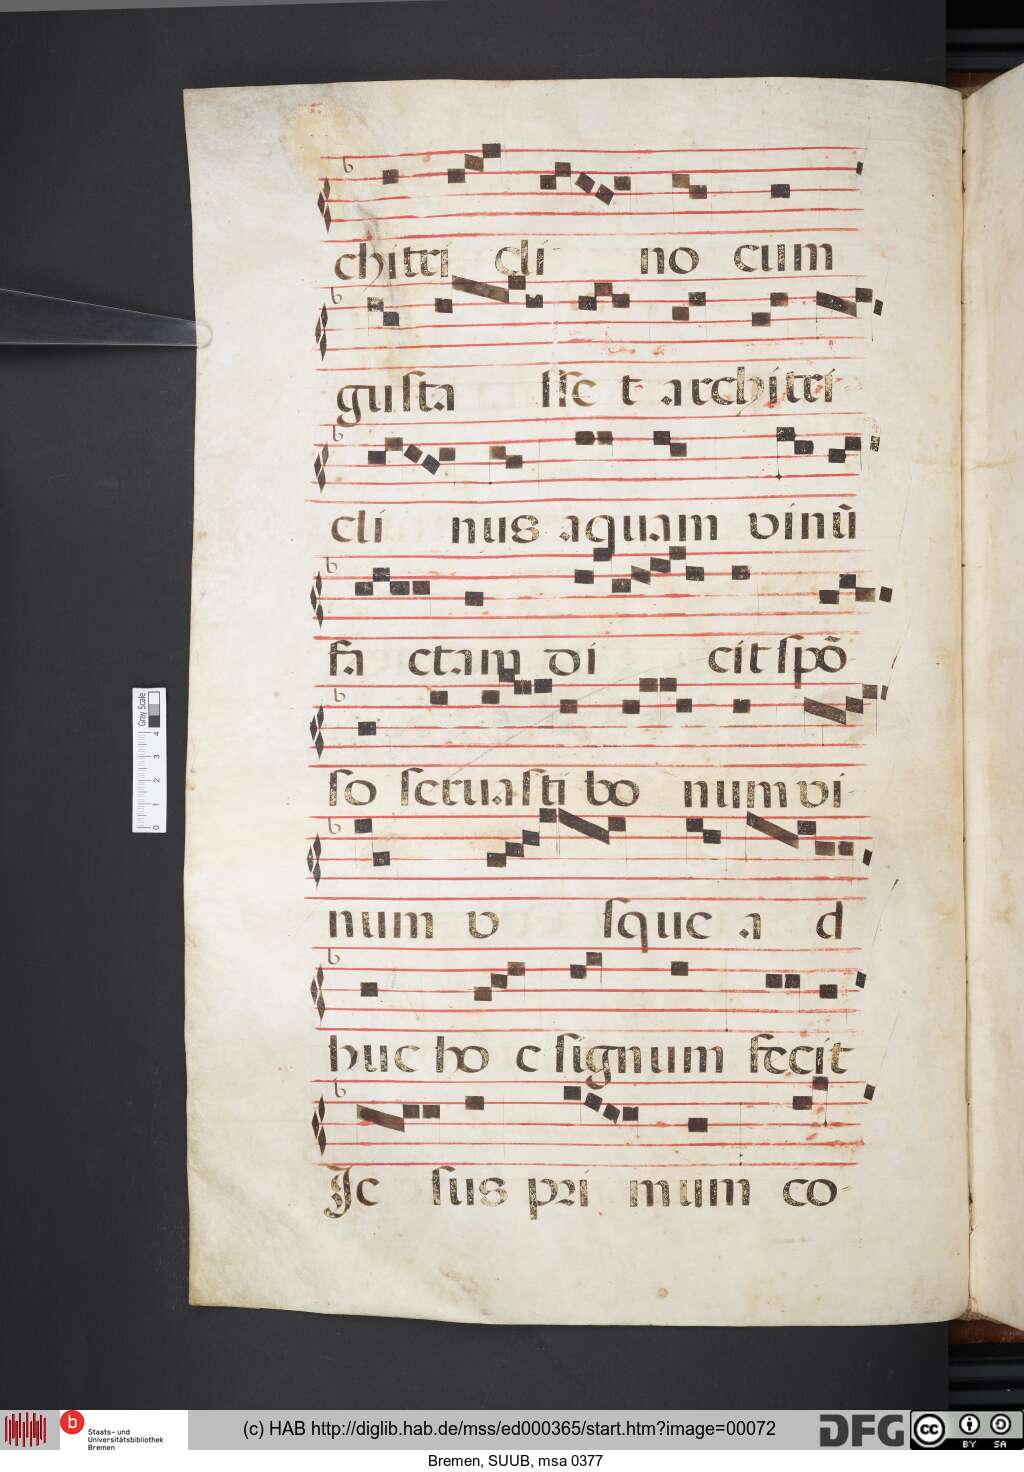 chitri cli no cum
gusta sset architri
cli nus aquam vinũ
fa ctam di cit spõ
so servasti bo num vi
num v sque a d
huc ho c signum fecit
Je sus pri mum co-
Gray Scale
0 1 2 3 4
b Staats- und
Universitätsbibliothek
Bremen
(c) HAB http://diglib.hab.de/mss/ed000365/start.htm?image=00072
DFG
cc BY SA
Bremen, SUUB, msa 0377